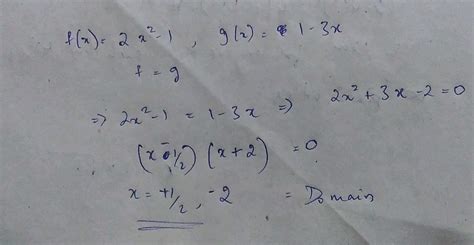 f(x) = 2x² - 1 , g(x) = 1 - 3x
f = g
⇒ 2x² - 1 = 1 - 3x ⇒ 2x² + 3x - 2 = 0
(x - 1/2) (x + 2) = 0
x = +1/2 , -2 = Domain